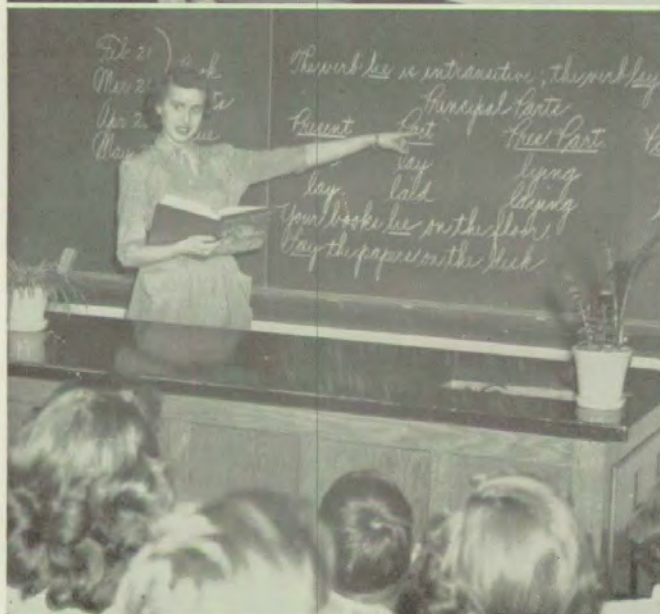 Feb 21
Mar 2
Apr 2
May
The verb lie is intransitive; the verb lay
Principal Parts
Present Past Pres Part.
lay lying
lay laid laying
Your books lie on the floor
Lay the papers on the desk